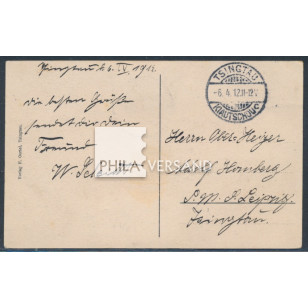 Tsingtau d. 6. IV. 1912.
die besten Grüße
sendet dir dein
Freund
W.
TSINGTAU
-6.4.12.11-12V.
KIAUTSCHOU
Herrn Ober-Heizer
Adolf Homberg
S.M.S. Leipzig.
Tsingtau.
PHILA VERSAND